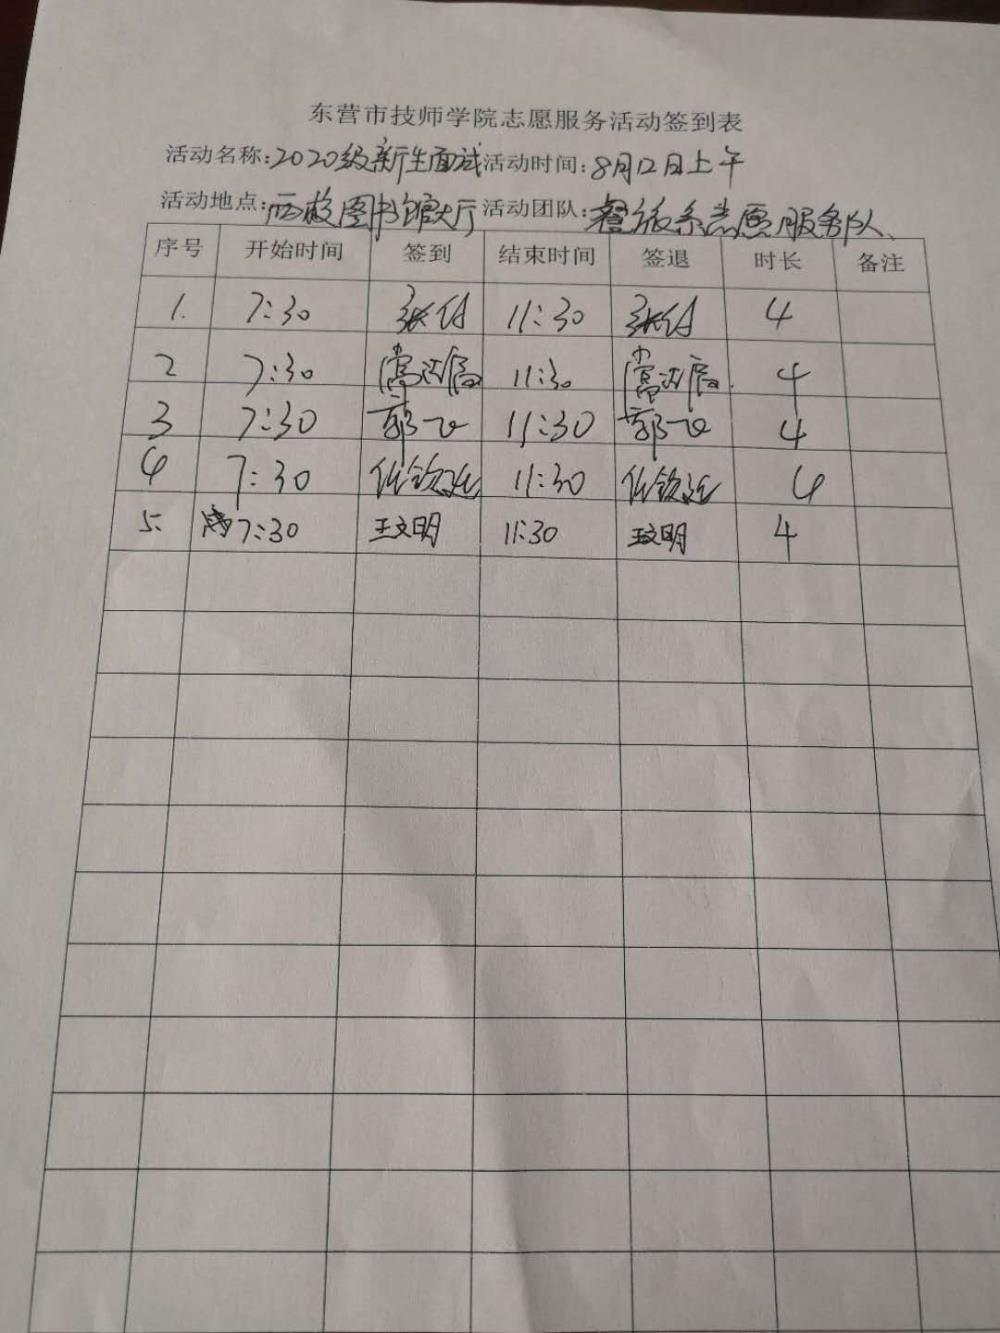 东营市技师学院志愿服务活动签到表
活动名称:2020级新生面试活动时间:8月12日上午
活动地点:西校图书馆大厅活动团队:系志愿服务队
序号 开始时间 签到 结束时间 签退 时长 备注
1. 7:30 张 11:30 张 4
2 7:30 11:30 4
3 7:30 郭飞 11:30 郭飞 4
4 7:30 任钦廷 11:30 任钦廷 4
5. 7:30 王文明 11:30 王文明 4